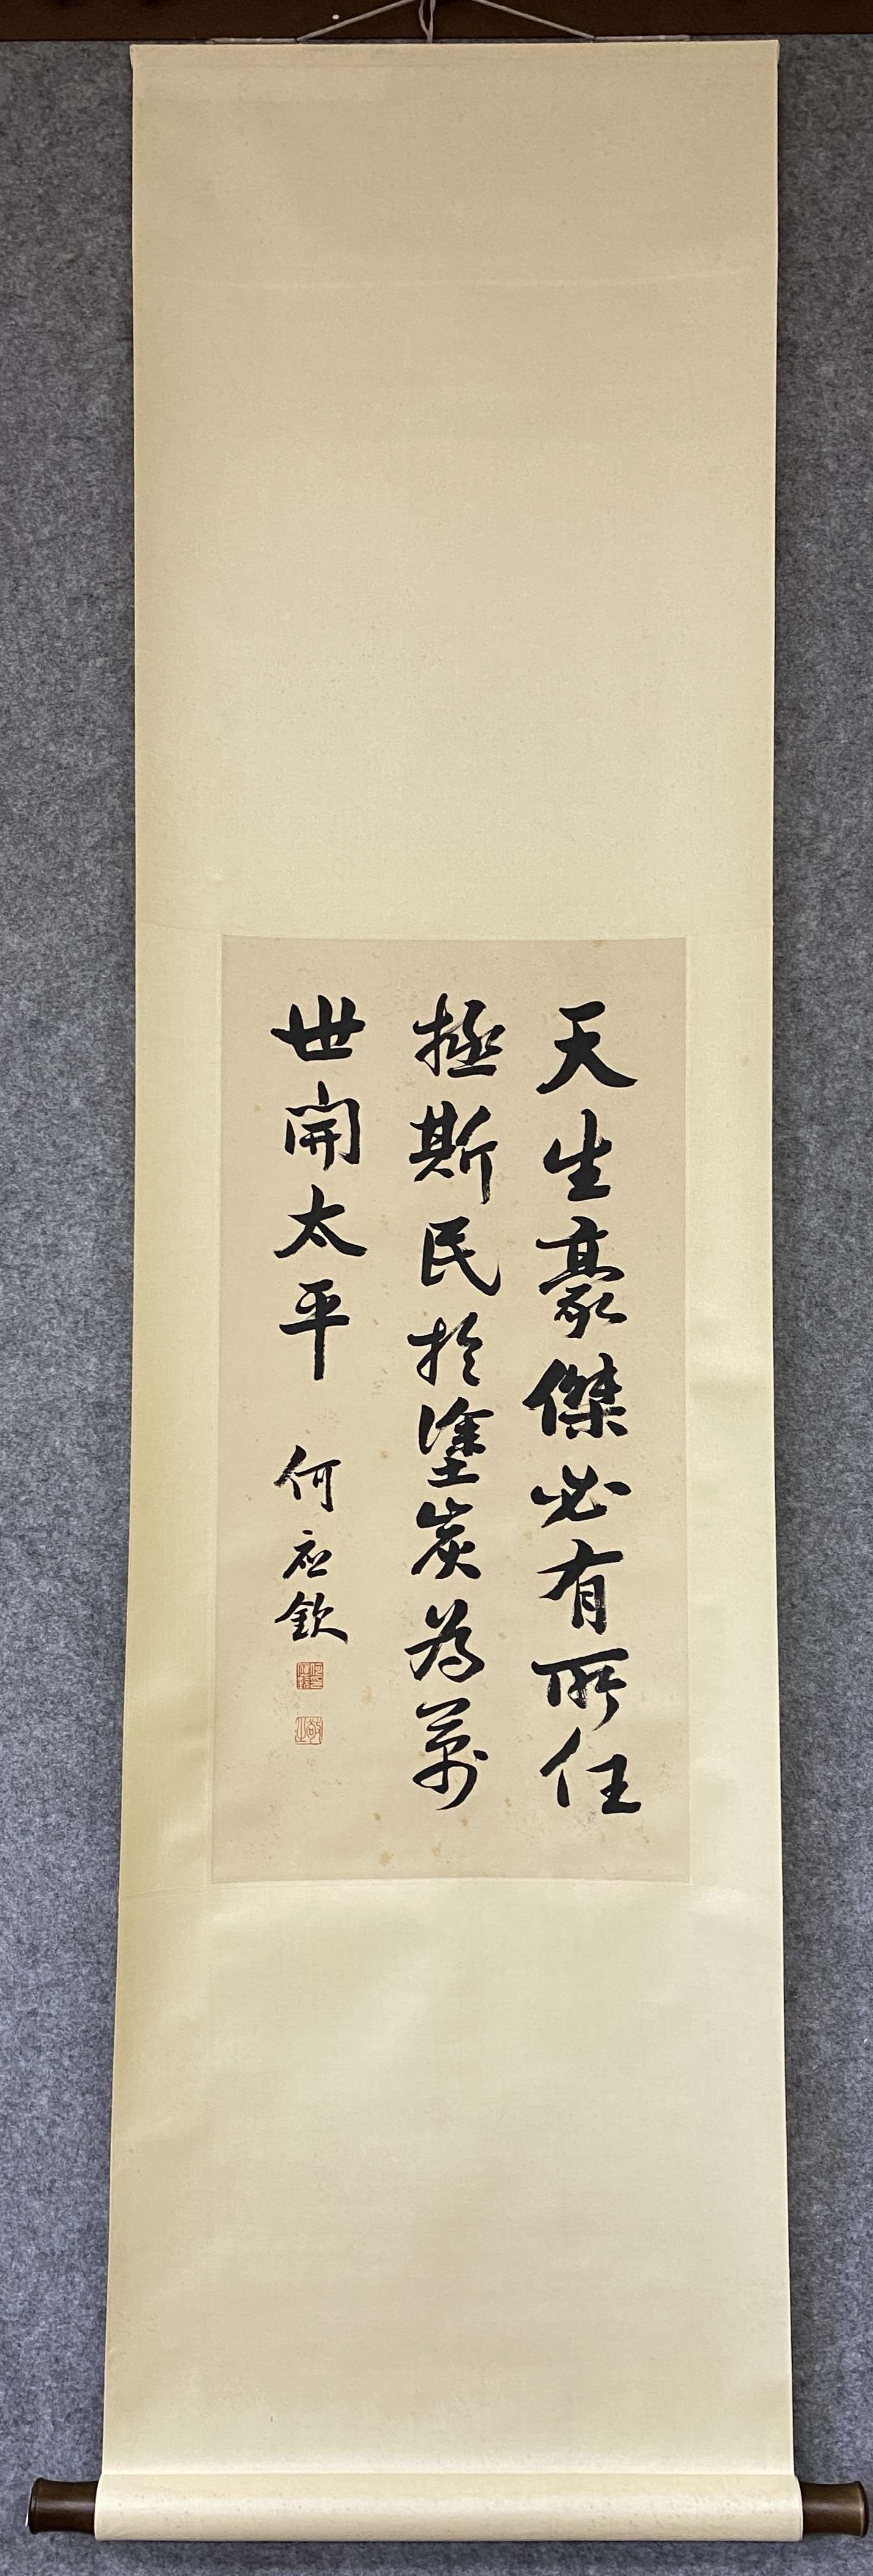 天生豪傑必有所任
拯斯民於塗炭為萬
世開太平
何应欽